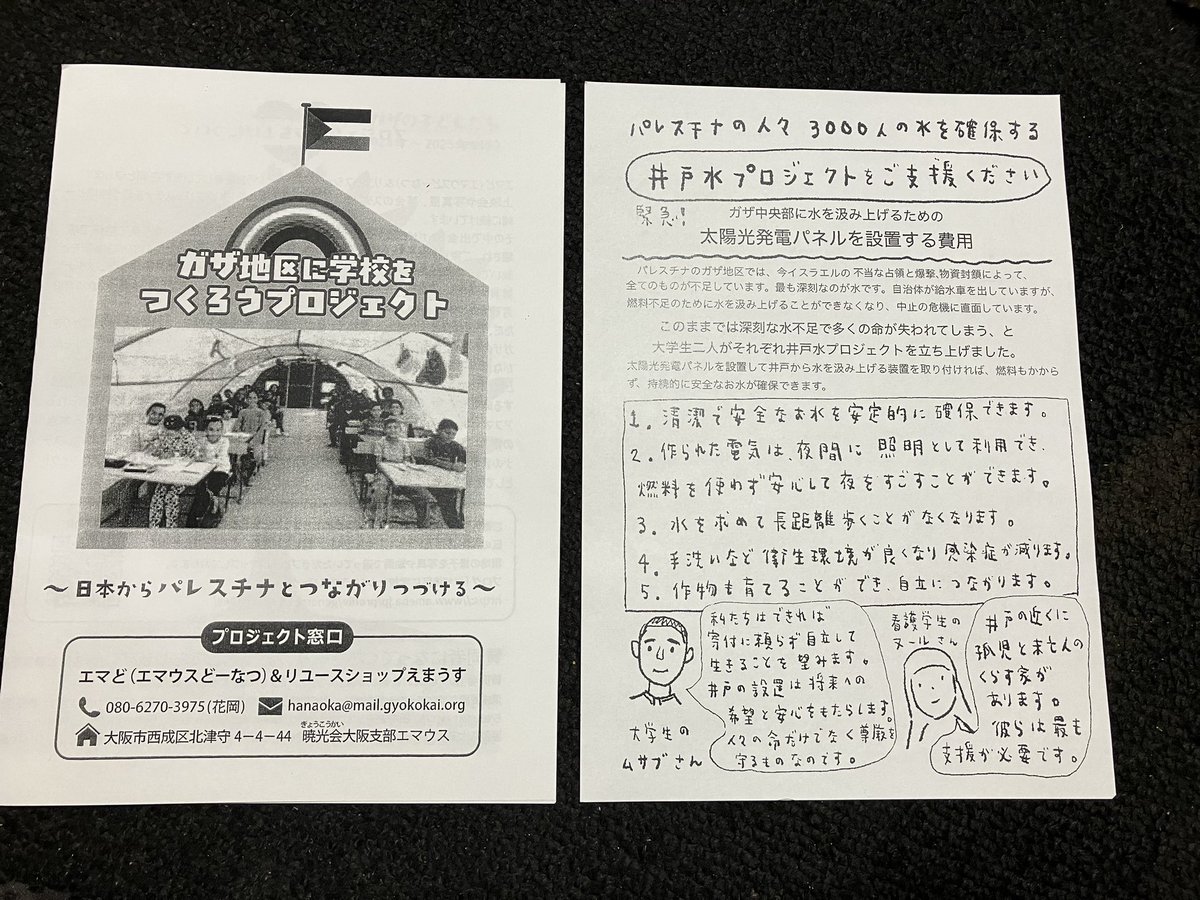 ガザ地区に学校を
つくろうプロジェクト
〜日本からパレスチナとつながりつづける〜
プロジェクト窓口
エマど(エマウスどーなつ)&リユースショップえまうす
080-6270-3975(花岡) hanaoka@mail.gyokokai.org
大阪市西成区北津守4-4-44 暁光会大阪支部エマウス
きょうこうかい
パレスチナの人々 3000人の水を確保する
井戸水プロジェクトをご支援ください
緊急!
ガザ中央部に水を汲み上げるための
太陽光発電パネルを設置する費用
パレスチナのガザ地区では、今イスラエルの不当な占領と爆撃、物資封鎖によって、
全てのものが不足しています。最も深刻なのが水です。自治体が給水車を出していますが、
燃料不足のために水を汲み上げることができなくなり、中止の危機に直面しています。
このままでは深刻な水不足で多くの命が失われてしまう、と
大学生二人がそれぞれ井戸水プロジェクトを立ち上げました。
太陽光発電パネルを設置して井戸から水を汲み上げる装置を取り付ければ、燃料もかから
ず、持続的に安全なお水が確保できます。
1. 清潔で安全なお水を安定的に確保できます。
2. 作られた電気は、夜間に照明として利用でき、
燃料を使わず安心して夜をすごすことができます。
3. 水を求めて長距離歩くことがなくなります。
4. 手洗いなど衛生環境が良くなり感染症が減ります。
5. 作物も育てることができ、自立につながります。
私たちはできれば
寄付に頼らず自立して
生きることを望みます。
井戸の設置は将来への
希望と安心をもたらします。
人々の命だけでなく尊厳を
守るものなのです。
大学生の
ムサブさん
看護学生の
ヌールさん
井戸の近くに
孤児と未亡人の
くらす家が
あります。
彼らは最も
支援が必要です。